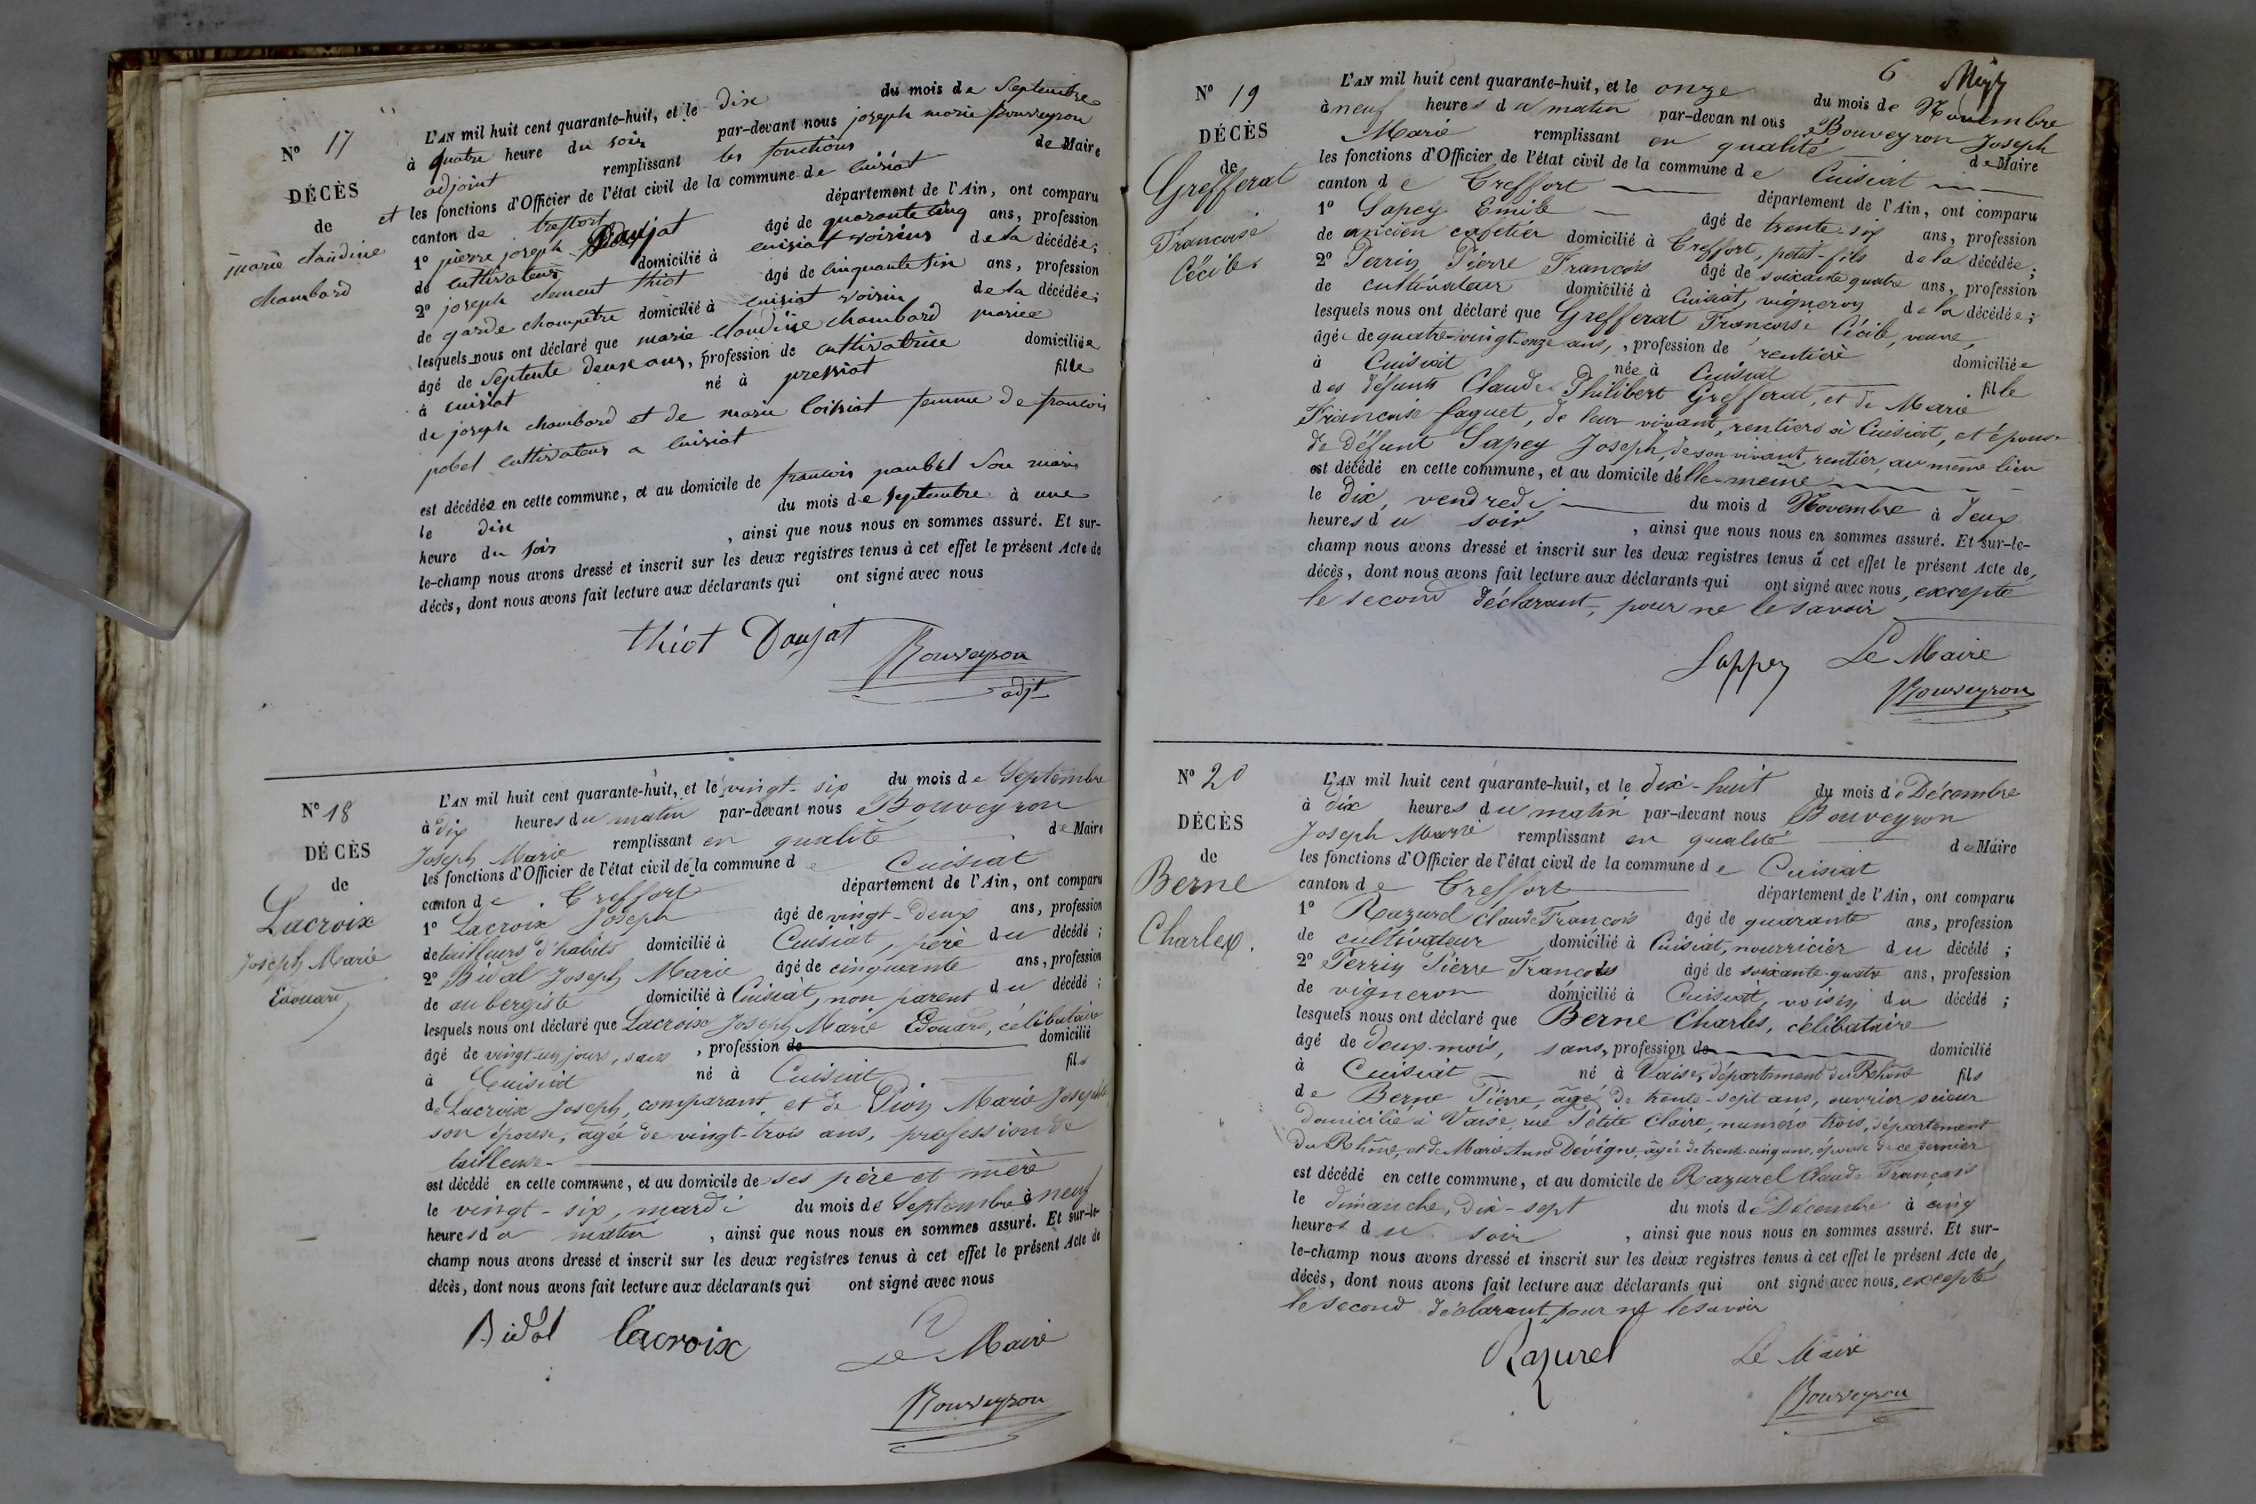 N° 17
DÉCÈS
de
marie claudine
chambard
L'AN mil huit cent quarante-huit, et le dix du mois de Septembre
à quatre heure du soir par-devant nous joseph marie bouveyron
adjoint remplissant les fonctions de Maire
et les fonctions d'Officier de l'état civil de la commune de cuisiat
canton de treffort département de l'Ain, ont comparu
1° pierre joseph Doujat âgé de quarante cinq ans, profession
de cultivateur domicilié à cuisiat voisin de la décédée;
2° joseph clement thiot âgé de cinquante six ans, profession
de garde champêtre domicilié à cuisiat voisin de la décédée;
lesquels nous ont déclaré que marie claudine chambard mariée
âgé de Septente deux ans, profession de cultivatrice domiciliée
à cuisiat né à pressiat fille
de joseph chambard et de marie loisiat femme de francois
pobel cultivateur a cuisiat
est décédée en cette commune, et au domicile de francois paubel Son mari
le dix du mois de septembre à une
heure du soir , ainsi que nous nous en sommes assuré. Et sur-
le-champ nous avons dressé et inscrit sur les deux registres tenus à cet effet le présent Acte de
décès, dont nous avons fait lecture aux déclarants qui ont signé avec nous
thiot Doujat Bouveyron
adjt
N° 18
DÉCÈS
de
Lacroix
Joseph Marie
Edouard
L'AN mil huit cent quarante-huit, et le vingt-six du mois de Septembre
à dix heures du matin par-devant nous Bouveyron
Joseph Marie remplissant en qualité de Maire
les fonctions d'Officier de l'état civil de la commune de Cuisiat
canton de Treffort département de l'Ain, ont comparu
1° Lacroix Joseph âgé de vingt-deux ans, profession
de tailleurs d'habits domicilié à Cuisiat, père du décédé;
2° Bidal Joseph Marie âgé de cinquante ans, profession
de aubergiste domicilié à Cuisiat, non parent du décédé;
lesquels nous ont déclaré que Lacroix Joseph Marie Edouard, célibataire
âgé de vingt-un jours, sans , profession de domicilié
à Cuisiat né à Cuisiat fils
de Lacroix Joseph, comparant et de Pion Marie Josephte
son épouse, âgée de vingt-trois ans, profession de
tailleuse
est décédé en cette commune, et au domicile de ses père et mère
le vingt-six, mardi du mois de Septembre à neuf
heures du matin , ainsi que nous nous en sommes assuré. Et sur-le-
champ nous avons dressé et inscrit sur les deux registres tenus à cet effet le présent Acte de
décès, dont nous avons fait lecture aux déclarants qui ont signé avec nous
Bidal lacroix Le Maire
Bouveyron
6
N° 19
DÉCÈS
de
Grefferat
Francoise
Cécile
L'AN mil huit cent quarante-huit, et le onze du mois de Novembre
à neuf heures du matin par-devan nt ous Bouveyron Joseph
Marie remplissant en qualité de Maire
les fonctions d'Officier de l'état civil de la commune de Cuisiat
canton de Treffort département de l'Ain, ont comparu
1° Sapey Emile âgé de trente-six ans, profession
de ancien cafetier domicilié à Treffort, petit-fils de la décédée;
2° Perrin Pierre François âgé de soixante quatre ans, profession
de cultivateur domicilié à Cuisiat, vigneron de la décédée;
lesquels nous ont déclaré que Grefferat Francoise Cécile, veuve,
âgée de quatre-vingt-onze ans, , profession de rentière domiciliée
à Cuisiat née à Cuisiat fille
des défunts Claude Philibert Grefferat, et de Marie
Francoise faguet, de leur vivant, rentiers à Cuisiat, et épouse
de défunt Sapey Joseph, de son vivant rentier, au même lieu
est décédé en cette commune, et au domicile délle-même
le dix, vendredi du mois d Novembre à deux
heures du soir , ainsi que nous nous en sommes assuré. Et sur-le-
champ nous avons dressé et inscrit sur les deux registres tenus à cet effet le présent Acte de
décès, dont nous avons fait lecture aux déclarants qui ont signé avec nous, excepté
le second déclarant, pour ne le savoir
Sappey Le Maire
Bouveyron
N° 20
DÉCÈS
de
Berne
Charles.
L'AN mil huit cent quarante-huit, et le dix-huit du mois de Décembre
à dix heures du matin par-devant nous Bouveyron
Joseph Marie remplissant en qualité de Maire
les fonctions d'Officier de l'état civil de la commune de Cuisiat
canton de Treffort département de l'Ain, ont comparu
1° Razurel Claude François âgé de quarante ans, profession
de cultivateur domicilié à Cuisiat, nourricier du décédé;
2° Perrin Pierre François âgé de soixante-quatre ans, profession
de vigneron domicilié à Cuisiat, voisin du décédé;
lesquels nous ont déclaré que Berne Charles, célibataire
âgé de deux-mois, sans, profession de domicilié
à Cuisiat né à Vaise, département du Rhône fils
de Berne Pierre, âgé de trente-sept ans, ouvrier scieur
domicilié à Vaise, rue Petite Claire, numéro trois, département
du Rhône, et de Marie Anne Dévigne, âgée de trente-cinq ans, épouse de ce dernier
est décédé en cette commune, et au domicile de Razurel Claude François
le dimanche, dix-sept du mois de Décembre à cinq
heures du soir , ainsi que nous nous en sommes assuré. Et sur-
le-champ nous avons dressé et inscrit sur les deux registres tenus à cet effet le présent Acte de
décès, dont nous avons fait lecture aux déclarants qui ont signé avec nous, excepté
le second déclarant, pour ne le savoir
Razurel Le Maire
Bouveyron